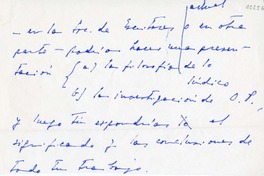 actual
— en la Soc. de Escritores o en otra
parte — podrías hacer una presen-
tación { a) la filosofía de lo
lúdico
b) la investigación de O. P.,
y luego tú expondrías el
significado y las conclusiones de
todo tu trabajo.